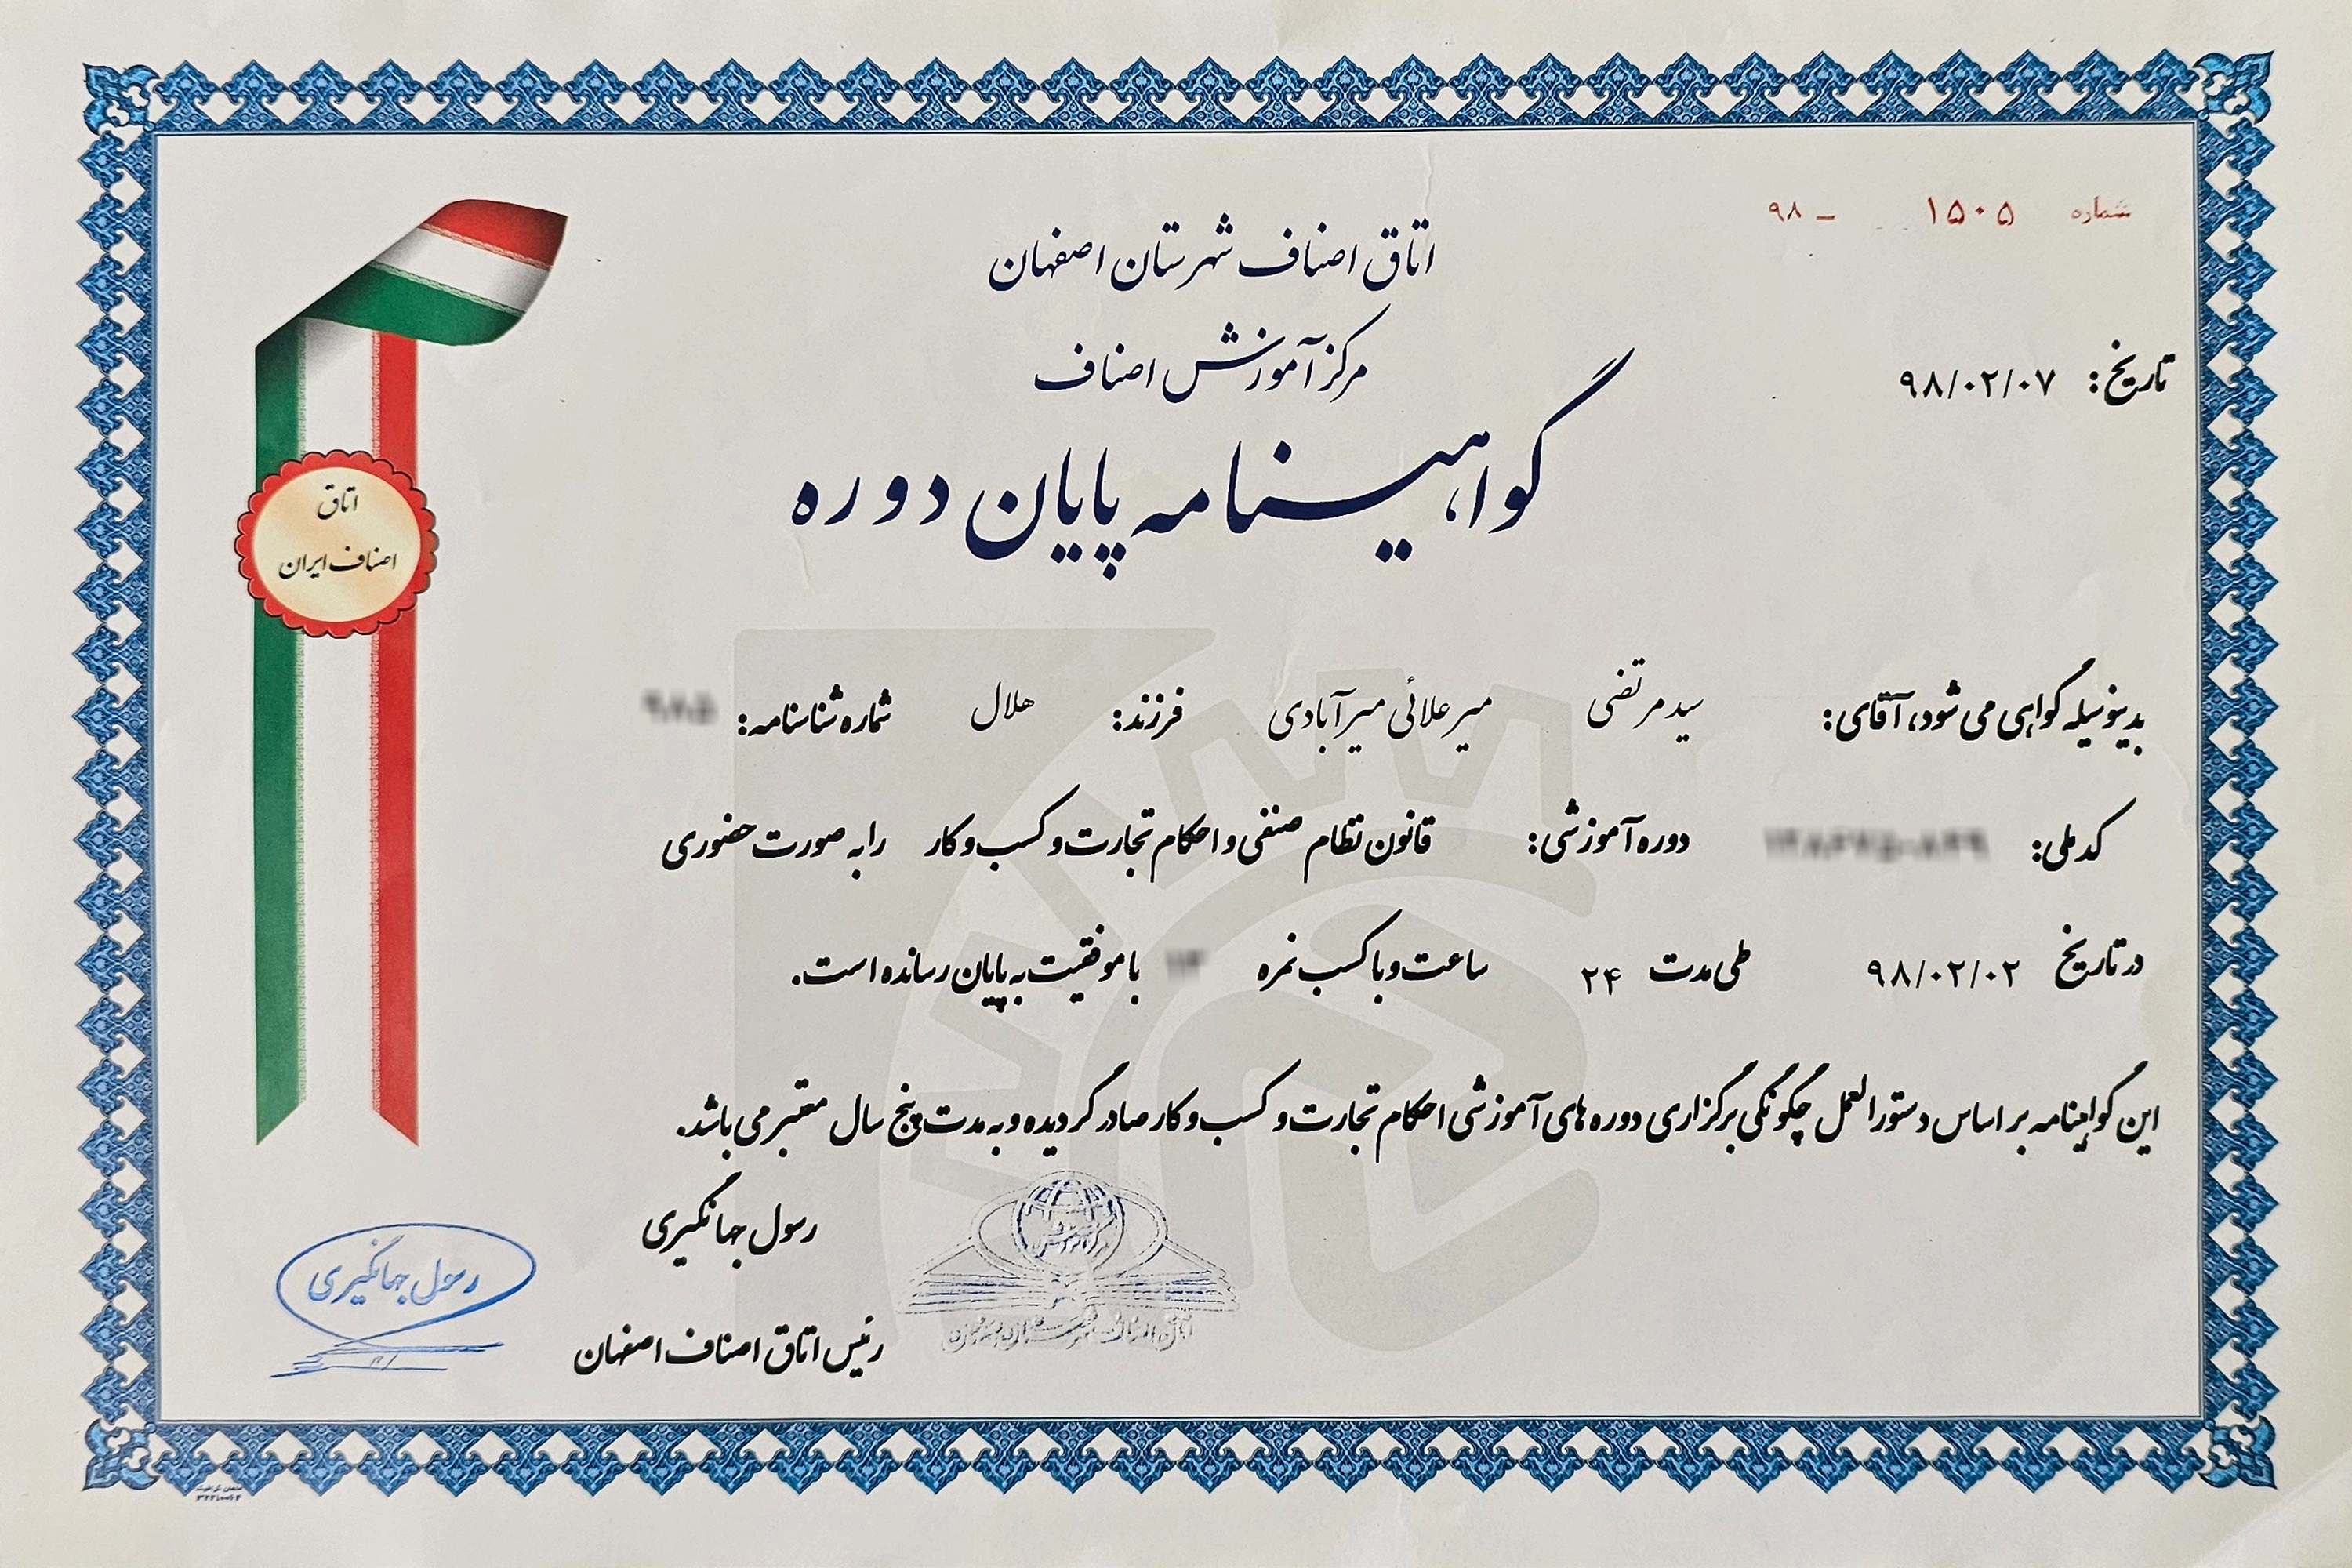 شماره ۱۵۰۵ – ۹۸
اتاق اصناف شهرستان اصفهان
مرکز آموزش اصناف
تاریخ: ۹۸/۰۲/۰۷
گواهینامه پایان دوره
اتاق
اصناف ایران
بدینوسیله گواهی می شود، آقای: سید مرتضی میرعلائی میرآبادی فرزند: هلال شماره شناسنامه:
کد ملی: دوره آموزشی: قانون نظام صنفی و احکام تجارت و کسب و کار را به صورت حضوری
در تاریخ ۹۸/۰۲/۰۲ طی مدت ۲۴ ساعت و با کسب نمره با موفقیت به پایان رسانده است.
این گواهینامه بر اساس دستورالعمل چگونگی برگزاری دوره های آموزشی احکام تجارت و کسب و کار صادر گردیده و به مدت پنج سال معتبر می باشد.
رسول جهانگیری
رئیس اتاق اصناف اصفهان
رسول جهانگیری